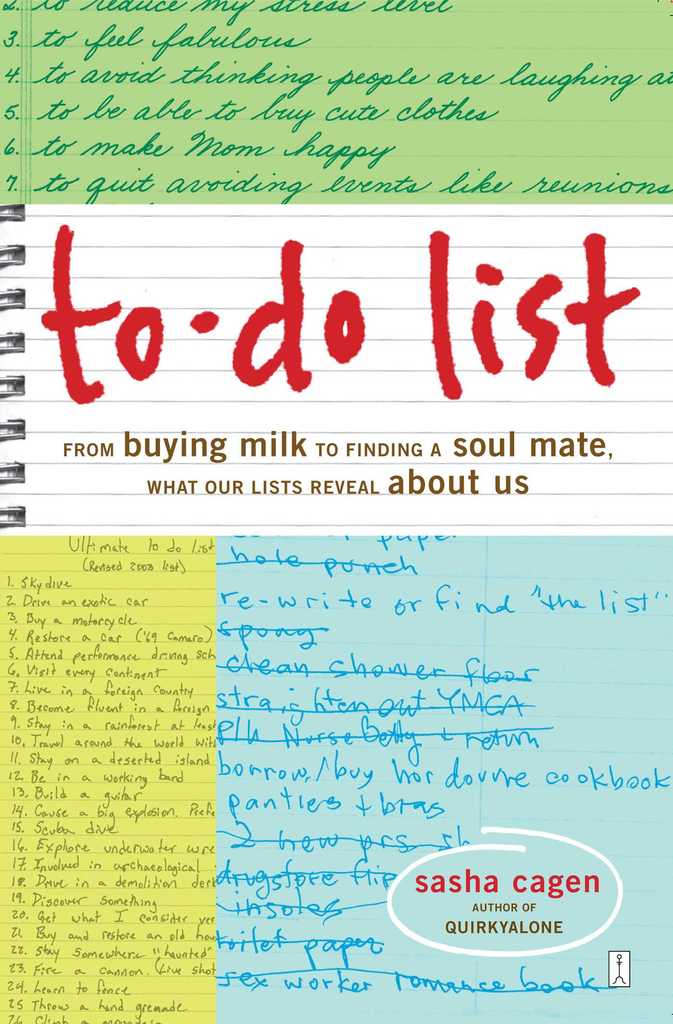 2. to reduce my stress level
3. to feel fabulous
4. to avoid thinking people are laughing at
5. to be able to buy cute clothes
6. to make Mom happy
7. to quit avoiding events like reunions
to-do list
FROM buying milk TO FINDING A soul mate,
WHAT OUR LISTS REVEAL about us
Ultimate to do list
(Revised 2003 list)
1. Skydive
2. Drive an exotic car
3. Buy a motorcycle
4. Restore a car ('69 Camaro)
5. Attend performance driving sch
6. Visit every continent
7. Live in a foreign country
8. Become fluent in a foreign
9. Stay in a rainforest at least
10. Travel around the world with
11. Stay on a deserted island
12. Be in a working band
13. Build a guitar
14. Cause a big explosion. Prefe
15. Scuba dive
16. Explore underwater wre
17. Involved in archaeological
18. Drive in a demolition derb
19. Discover something
20. Get what I consider ver
21. Buy and restore an old hou
22. Stay somewhere "haunted"
23. Fire a cannon. (Live shot
24. Learn to fence
25 Throw a hand grenade
26. Climb a
paper
hole punch
re-write or find "the list"
clean shower floor
straighten out YMCA
P/U Nurse Betty + return
borrow/buy hor dourve cookbook
panties + bras
2 new prs sh
drugstore flip
insoles
toilet paper
sex worker romance book
sasha cagen
AUTHOR OF
QUIRKYALONE